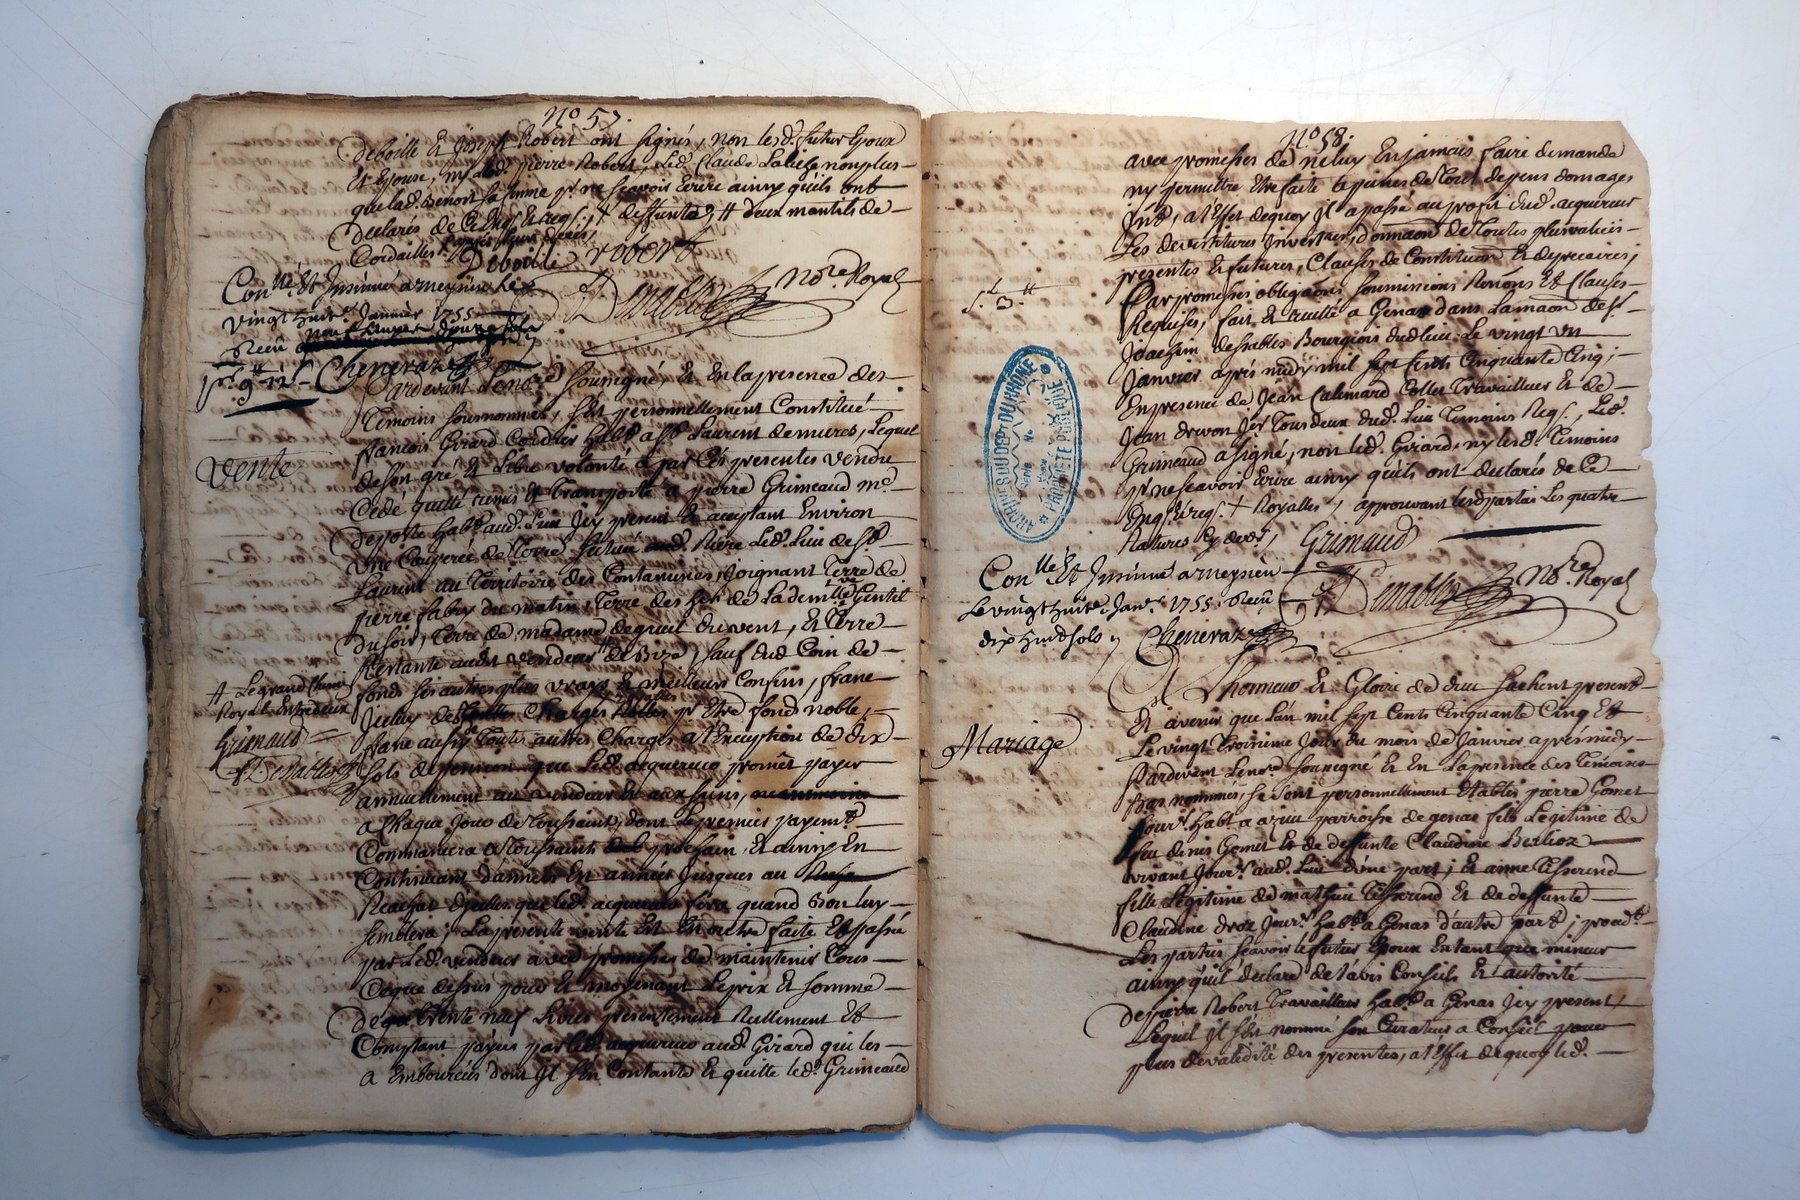 No 57.
deboille Et Joseph Robert ont signés, non lesd. futur Epoux
Et Epouse, ny led. pierre Robert, Led. Claude nonplus
que lad. Benoit sa femme pr. ne scavoir Ecrire ainsy qu'ils ont
declarés de Ce Enq. et req. ; + deffunte, # deux mantils de
Cordailles
Deboille robert
Conllé Et Insinué a meysieu Le
vingt huit Janvier 1755
Recu
Denables Nore. Royal
Chenevaz
Pardevant Lenore. soussigné Et En la presence des
Temoins sousnommés, s'est personnellement Constitué
francois Girard Cordier habt. a St. Laurent de mures, Lequel
de son gré Et Libre volonté a par Ces presentes vendu
vente
Cédé quitté remis Et Transporté a pierre Grimeaud me.
de poste habt. aud. Lieu Icy present Et acceptant Environ
une Couperée de Terre située Riere Led. Lieu de St.
Laurent au Territoire des Contamines, Joignant Terre de
pierre fabry du matin, Terre des
du soir, Terre de madame degueil du vent, Et Terre
Restante audit vendeur de Bize, sauf dud. Coin de
fonds ses autres plus vrays Et meilleurs Confins, franc
# Le grand Chemin
Royal Entredeux
Iceluy de Charges pr. Etre fond noble,
Grimaud
franc aussy de Toutes autres Charges a l'Exception de dix
Denables
sols de pension que Led. acquereur promet payer
annuellement au vendeur Et aux siens,
a Chaque Jour de Toussaints, dont Le premier payemt.
Commancera a Toussaints prochain, Et ainsy En
Continuant d'années En années Jusques au
Reachat d'icelles que led. acquereur fera quand Bon luy
semblera ; La presente vente Est En outre faite Et passée
par Led. vendeur avec promesses de maintenir Tous
Ceque dessus pour Et moyenant Le prix Et somme
de quarente neuf Livres presentement Reellement Et
Comptant payées par led. acquereur aud. Girard qui les
a Emboursés dont Il s'en Contante Et quitte led. Grimeaud
No 58.
avec promesses de ne luy En jamais faire demande
ny permettre Etre faite a peines de Tous depens domages
Intd., a l'Effet dequoy Il a passé au profit dud. acquereur
Les devestitures Investures, donnaon de Toutes plusvalues
presentes Et futures, Clauses de Constitution Et de precaires,
Par promesses obligaons soumissions Renons Et Clauses
Requises, fait Et recitté a Genas dans La maon de Sr.
Joachim desrables Bourgeois dud. lieu Le vingt un
Janvier apres midy mil sept Cents Cinquante Cinq,
En presence de Jean Calemard Collet Travailleur Et de
Jean drevon Jer. Tous deux dud. Lieu Temoins Reqs., Led.
Grimeaud a signé, non led. Girard, ny lesd. Temoins
pr. ne scavoir Ecrire ainsy qu'ils ont declarés de Ce
Enqs. Et reqs. + Royalles, approuvant lesd. parties Les quatre
Ratures Cy dest.,
Grimaud
Conllé Et Insinué a meysieu
Le vingt huit Janr. 1755. Recu
dix huit sols
Denables Nore. Royal
Chenevaz
ARCHIVES DU DEPt DU RHONE
PROPRIÉTÉ PUBLIQUE
A Lhonneur Et Gloire de dieu sachent presents
Et avenir que L'an mil sept Cents Cinquante Cinq Et
Le vingt Troisieme Jour du mois de Janvier apres midy
Mariage
Pardevant Lenore. soussigné Et En La presence des Temoins
bas nommés, se sont personnellement Etablis pierre Gomet
Jourr. habt. a azieu parroisse de genas fils Légitime de
feu denis Gomet Et de deffunte Claudine Berlioz
vivant Jourr. aud. Lieu d'une part ; Et anne Tisserand
fille Légitime de mathieu Tisserand Et de deffunte
Claudine droz Jourr. habt. a Genas d'autre part ; procedt.
Les parties scavoir le futur Epoux En tant que mineur
ainsy qu'il declare de l'avis Conseils Et autorité
de pierre Robert Travailleur habt. a Genas Icy present
Lequel Il s'est nommé son Curateur a Conseil pour
plus de validité des presentes, a l'Effet dequoy led.